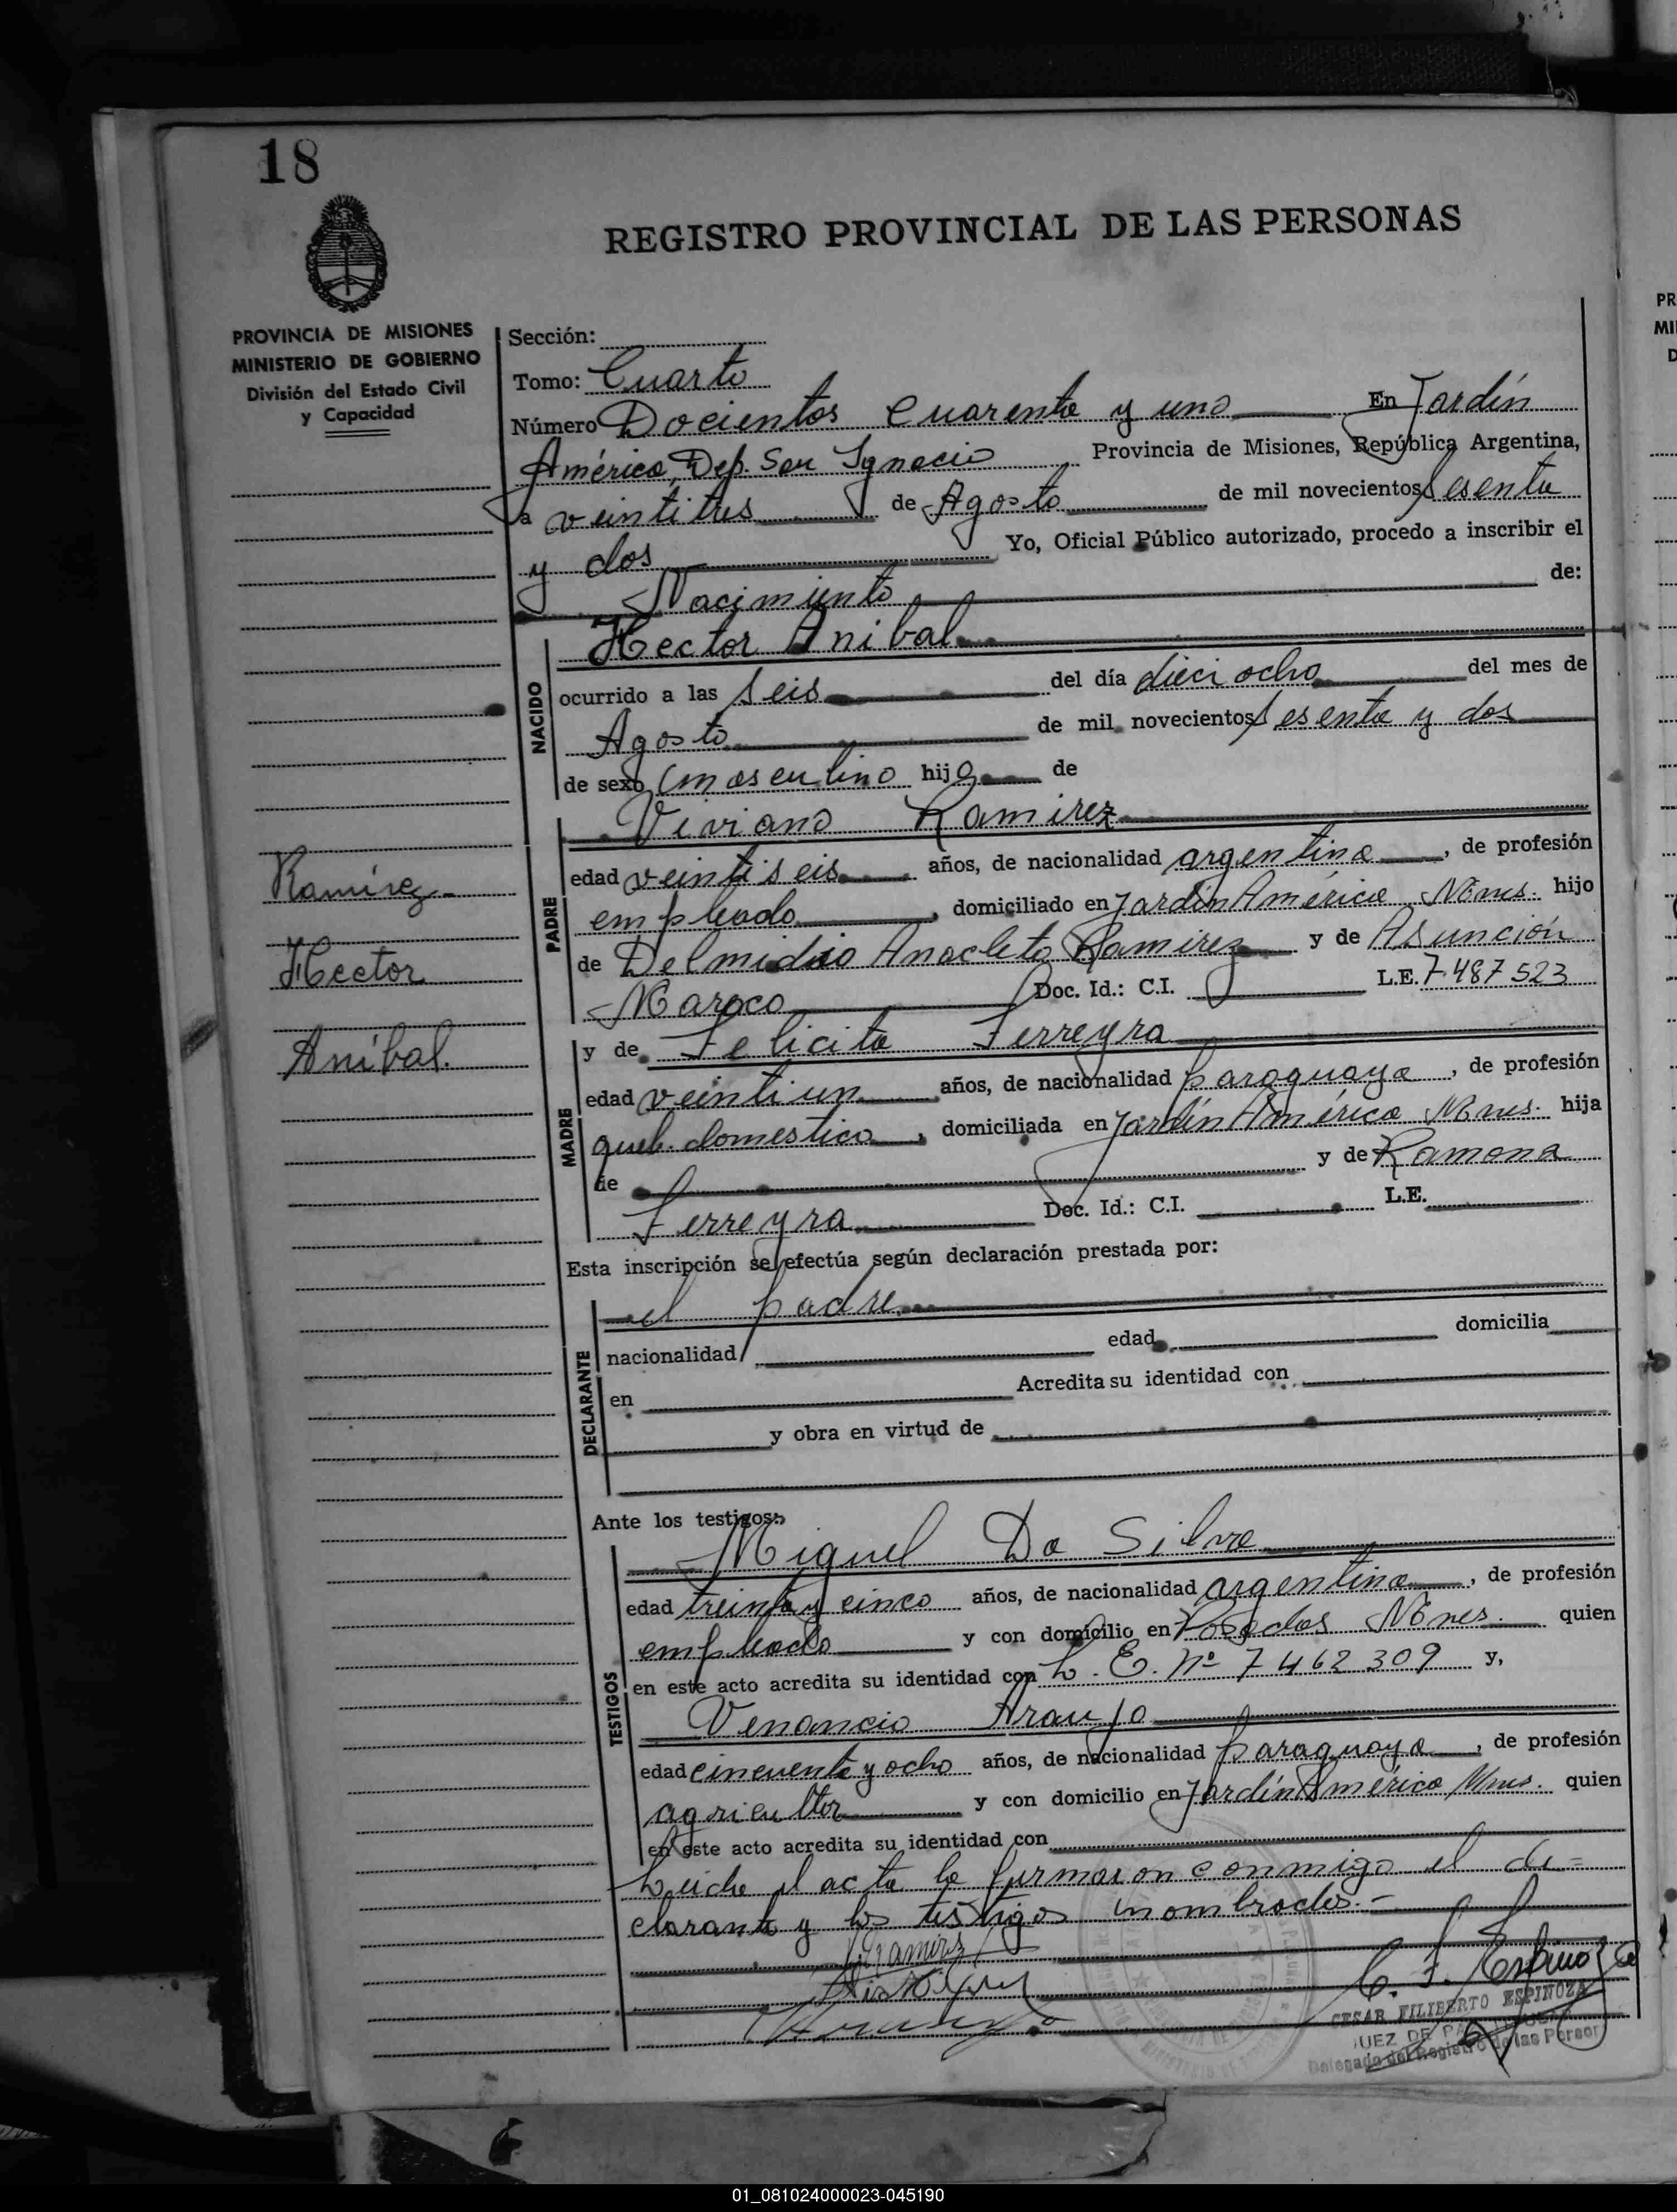 18
REGISTRO PROVINCIAL DE LAS PERSONAS
PROVINCIA DE MISIONES
MINISTERIO DE GOBIERNO
División del Estado Civil
y Capacidad
Sección:
Tomo: Cuarto
Número Docientos cuarenta y uno En Jardín
América, Dep. San Ignacio Provincia de Misiones, República Argentina,
a veintitres de Agosto de mil novecientos sesenta
y dos Yo, Oficial Público autorizado, procedo a inscribir el
Nacimiento de:
Hector Anibal
NACIDO
ocurrido a las seis del día dieciocho del mes de
Agosto de mil novecientos sesenta y dos
de sexo masculino hijo de
Viviano Ramirez
PADRE
edad veintiseis años, de nacionalidad argentina, de profesión
empleado, domiciliado en Jardín América Mnes. hijo
de Delmidio Anacleto Ramirez y de Asunción
Maroco Doc. Id.: C.I. L.E. 7.487.523
Ramírez
Hector
Aníbal.
y de Felicita Ferreyra
MADRE
edad veintiun años, de nacionalidad paraguaya, de profesión
queh. domestico, domiciliada en Jardín América Mnes. hija
de y de Ramona
Ferreyra Doc. Id.: C.I. L.E.
Esta inscripción se efectúa según declaración prestada por:
el padre
DECLARANTE
nacionalidad edad domicilia
en Acredita su identidad con
y obra en virtud de
Ante los testigos:
Miguel Da Silva
TESTIGOS
edad treinta y cinco años, de nacionalidad argentina, de profesión
empleado y con domicilio en Posadas Mnes. quien
en este acto acredita su identidad con L.E. Nº 7462309 y,
Venancio Araujo
edad cincuenta y ocho años, de nacionalidad paraguaya, de profesión
agricultor y con domicilio en Jardín América Mnes. quien
en este acto acredita su identidad con
Leida el acta la firmaron conmigo el de=
clarante y los testigos nombrados.-
Ramirez
C. F. Espinoza
CESAR FILIBERTO ESPINOZA
JUEZ DE PAZ
Delegado del Registro de las Person
PR
MI
D
01_081024000023-045190